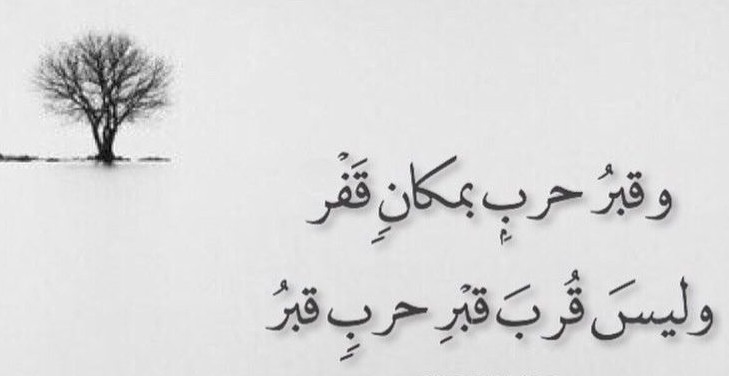 و قبرُ حربٍ بمكانٍ قَفْر
وليسَ قُربَ قبْرِ حربٍ قبرُ